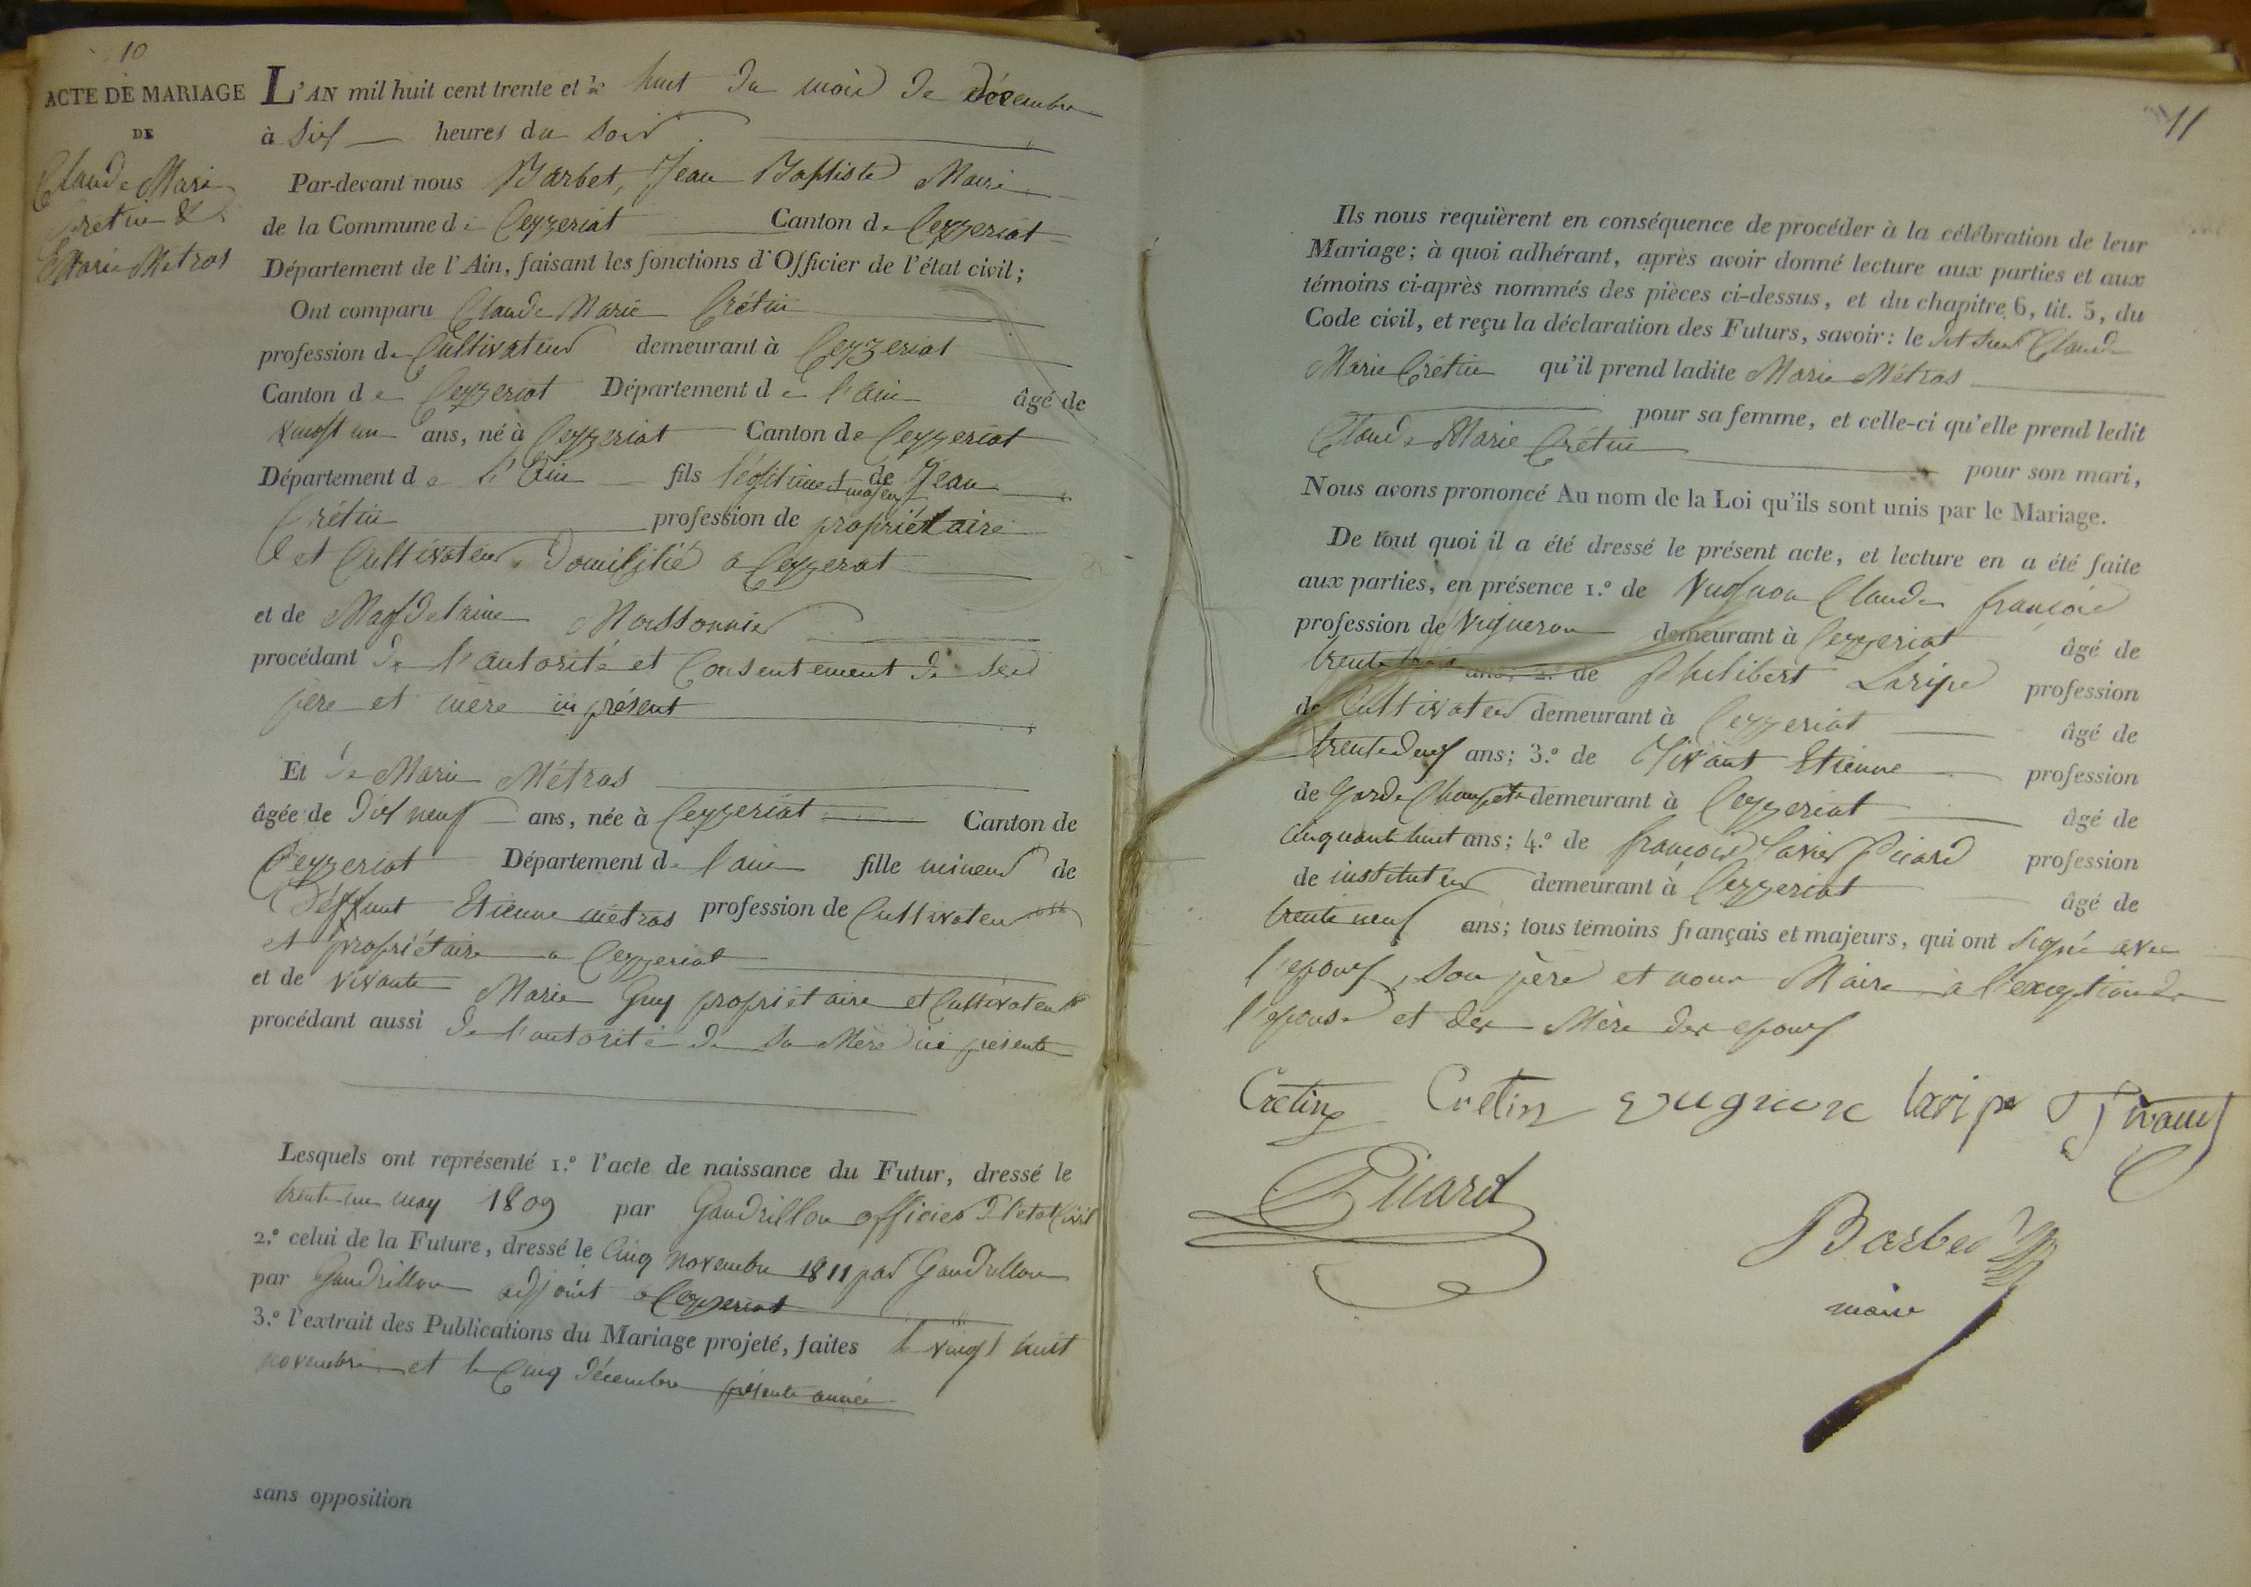 10
ACTE DE MARIAGE
DE
Claude Marie
Cretin &
Marie Metras
L'AN mil huit cent trente et le huit du mois de décembre
à six heures du soir
Par-devant nous Barbet, Jean Baptiste Maire
de la Commune de Ceyzeriat Canton de Ceyzeriat
Département de l'Ain, faisant les fonctions d'Officier de l'état civil;
Ont comparu Claude Marie Crétin
profession de Cultivateur demeurant à Ceyzeriat
Canton de Ceyzeriat Département de l'ain âgé de
vingt un ans, né à Ceyzeriat Canton de Ceyzeriat
Département de l'Ain fils légitime et majeur de Jean
Crétin profession de propriétaire
et Cultivateur domicilié a Ceyzerat
et de Magdelaine Moissonnier
procédant de l'autorité et Consentement de ses
père et mère ici présent
Et de Marie Métras
âgée de dix neuf ans, née à Ceyzeriat Canton de
Ceyzeriat Département de l'ain fille mineur de
Deffunt Etienne métras profession de Cultivateur
et propriétaire a Ceyzeriat
et de vivante Marie Guy propriétaire et Cultivateur
procédant aussi de l'autorité de sa Mère ici présente
Lesquels ont représenté 1.º l'acte de naissance du Futur, dressé le
trente un may 1809 par Gaudrillon officier d l'etat Civil
2.º celui de la Future, dressé le Cinq novembre 1811 par Gaudrillon
par Gaudrillon adjoint a Ceyzeriat
3.º l'extrait des Publications du Mariage projeté, faites le vingt huit
novembre et le Cinq décembre présente année
sans opposition
11
Ils nous requièrent en conséquence de procéder à la célébration de leur
Mariage; à quoi adhérant, après avoir donné lecture aux parties et aux
témoins ci-après nommés des pièces ci-dessus, et du chapitre 6, tit. 5, du
Code civil, et reçu la déclaration des Futurs, savoir: le dit sieur Claude
Marie Crétin qu'il prend ladite Marie Métras
pour sa femme, et celle-ci qu'elle prend ledit
Claude Marie Crétin
pour son mari,
Nous avons prononcé Au nom de la Loi qu'ils sont unis par le Mariage.
De tout quoi il a été dressé le présent acte, et lecture en a été faite
aux parties, en présence 1.º de Vugnon Claude françois
profession de Vigneron demeurant à Ceyzeriat âgé de
trente trois ans; 2.º de Philibert Laripe profession
de Cultivateur demeurant à Ceyzeriat âgé de
ans; 3.º de Etienne profession
de Garde Champetre demeurant à Ceyzeriat âgé de
cinquante huit ans; 4.º de françois Xavier Picard profession
de instituteur demeurant à Ceyzeriat âgé de
trente neuf ans; tous témoins français et majeurs, qui ont signé avec
l'epoux, son père et nous Maire à l'exception de
l'epouse et des Mère des epoux
Cretin Cretin vugnon laripe
Picard
Barbet
maire